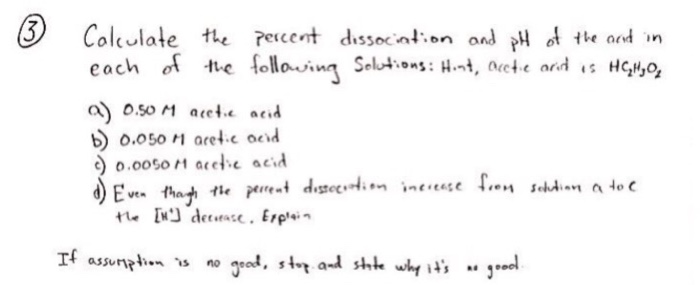 ③ Calculate the percent dissociation and pH of the acid in
each of the following Solutions: Hint, acetic acid is HC₂H₃O₂
a) 0.50 M acetic acid
b) 0.050 M acetic acid
c) 0.0050 M acetic acid
d) Even though the percent dissociation increase from solution a to c
the [H⁺] decrease. Explain
If assumption is no good, stop and state why it's no good.